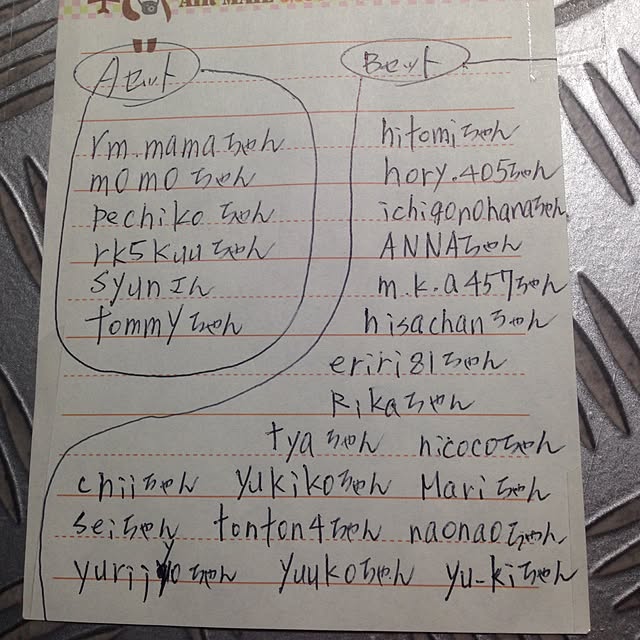 AIR MAIL
Aセット
rm.mamaちゃん
momoちゃん
pechikoちゃん
rk5kuuちゃん
syunエん
tommyちゃん
Bセット
hitomiちゃん
hory.405ちゃん
ichigonohanaちゃん
ANNAちゃん
m.k.a457ちゃん
hisachanちゃん
eriri81ちゃん
Rikaちゃん
tyaちゃん nicocoちゃん
chiiちゃん yukikoちゃん Mariちゃん
seiちゃん tonton4ちゃん naonaoちゃん
yurijyoちゃん yuukoちゃん yu-kiちゃん